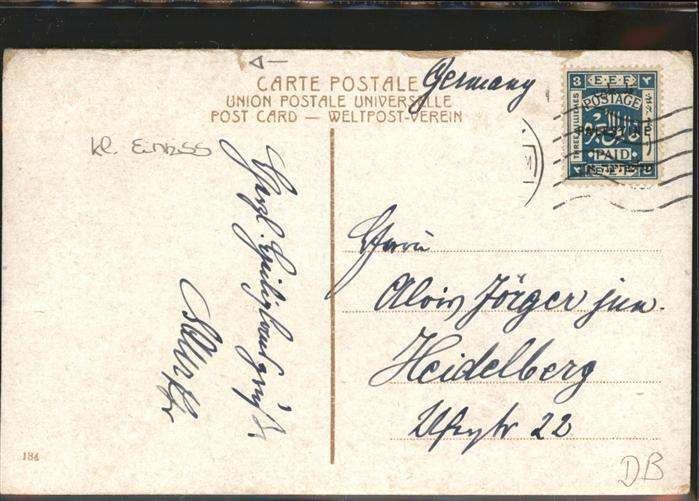 CARTE POSTALE
UNION POSTALE UNIVERSELLE
POST CARD — WELTPOST-VEREIN
Germany
3 E.E.F. ٣
POSTAGE
PALESTINE
PAID
THREE MILLIEMES
kl. Einriss
Herzl. Heiligelandgrüße
Herrn
Alois Jörger jun.
Heidelberg
22
184
DB